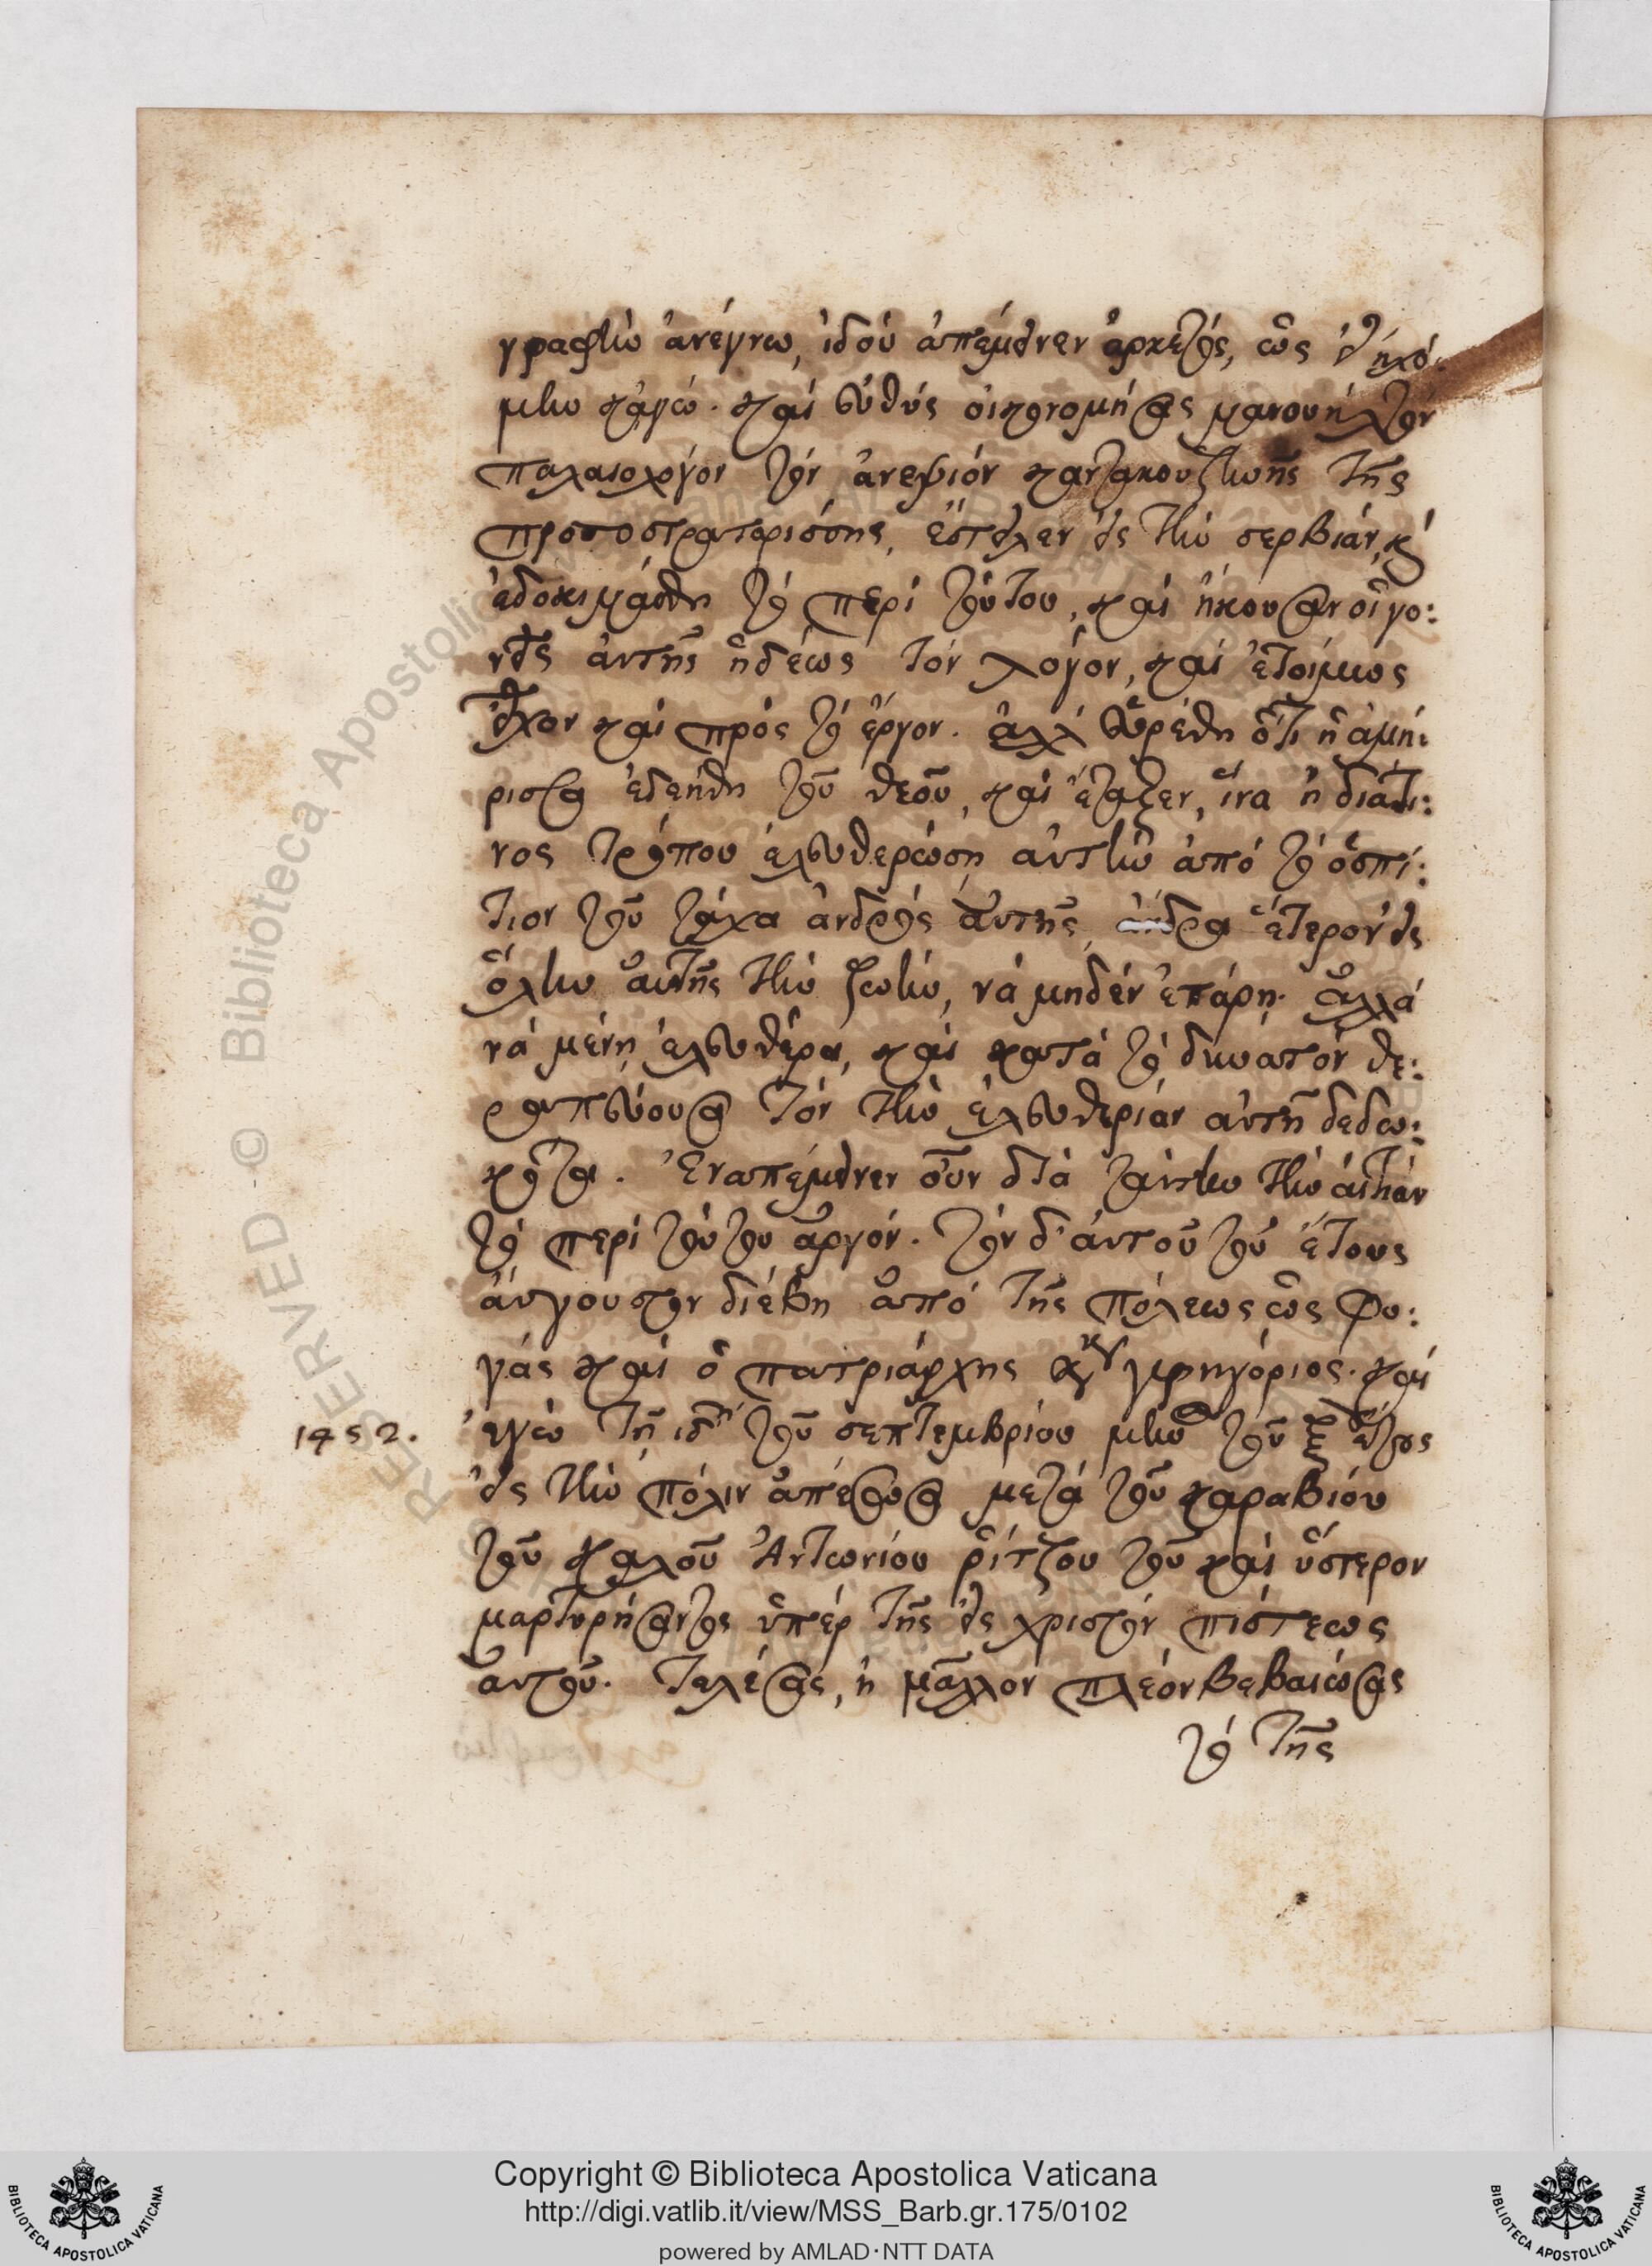 γραφὴν ἀνέγνω, ἰδοὺ ἀπέμεινεν ἀρκετός, ὡς εἰ ηχό:
μην κἀγώ. καὶ εὐθὺς οἰκονομήσας μανουὴλ τὸν
παλαιολόγον τὸν ἀνεψιὸν καντακουζηνῆς τῆς
πρωτοστρατορίσσης, ἔστειλεν εἰς τὴν σερβίαν, κ
ἐδοκιμάσθη τὸ περὶ τούτου, καὶ ἤκουσαν οἱ γο:
νεῖς αὐτῆς ἡδέως τὸν λόγον, καὶ ἑτοίμως
εἶχον καὶ πρὸς τὸ ἔργον. ἀλλ' εὑρέθη ὅτι ἡ ἀμή:
ρισσα ἐδεήθη τοῦ θεοῦ, καὶ ἔταξεν, ἵνα ἢ διάτι:
νος τρόπου ἐλευθερώσῃ αὐτὴν ἀπὸ τὸ ὁσπί:
τιον τοῦ τάχα ἀνδρὸς αὐτῆς, ἄνδρα ἕτερον εἰς
ὅλην αὐτῆς τὴν ζωὴν, νὰ μηδὲν ἐπάρη. ἀλλὰ
νὰ μένῃ ἐλευθέρα, καὶ κατὰ τὸ δυνατὸν θε:
ραπεύουσα τὸν τὴν ἐλευθερίαν αὐτῇ δεδω:
κότα. Ἐναπέμεινεν οὖν διὰ ταύτην τὴν αἰτίαν
τὸ περὶ τούτου ἀργόν. τὸν δ' αὐτοῦ τοῦ ἔτους
αὔγουστον διέβη ἀπὸ τῆς πόλεως ὡς φυ:
γὰς καὶ ὁ πατριάρχης κὺρ γρηγόριος. καὶ
1452. ἐγὼ τῇ ιδῃ τοῦ σεπτεμβρίου μην τοῦ ξ ἔτους
εἰς τὴν πόλιν ἀπέσωσα μετὰ τοῦ καραβίου
τοῦ καλοῦ Ἀντωνίου ῥίτζου τοῦ καὶ ὕστερον
μαρτυρήσαντος ὑπὲρ τῆς εἰς χριστὸν πίστεως
αὐτοῦ. τελέσας, ἢ μᾶλλον πλέον βεβαιώσας
τὸ τῆς
RESERVED - © Biblioteca Apostolica
Copyright © Biblioteca Apostolica Vaticana
http://digi.vatlib.it/view/MSS_Barb.gr.175/0102
powered by AMLAD·NTT DATA
BIBLIOTECA APOSTOLICA VATICANA
BIBLIOTECA APOSTOLICA VATICANA